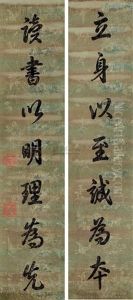 立身以至誠為本
讀書以明理為先